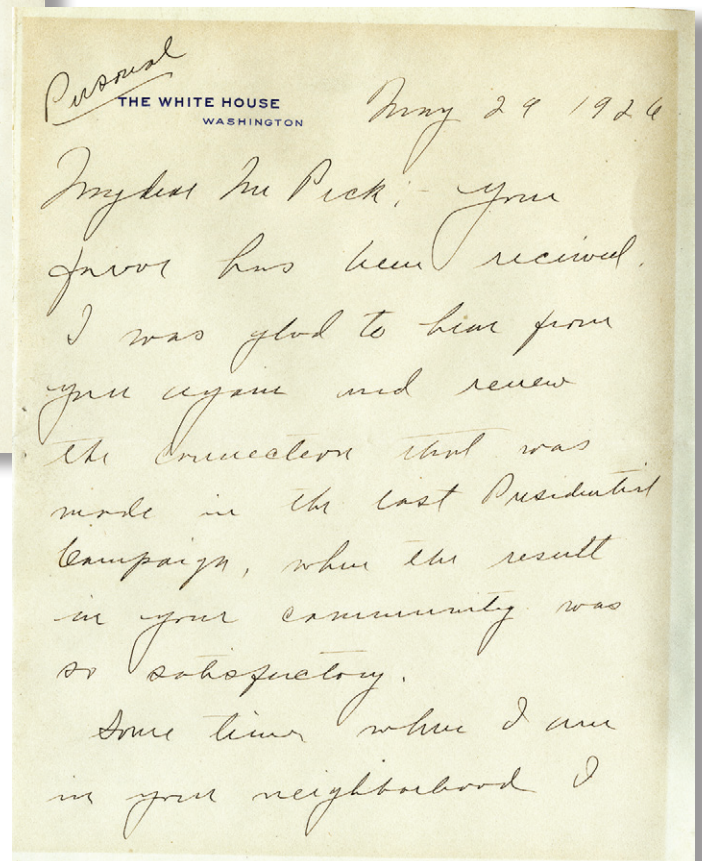 Personal
THE WHITE HOUSE
WASHINGTON
May 29 1926
My dear Mr Peck; - Your
favor has been received.
I was glad to hear from
you again and renew
the connection that was
made in the last Presidential
Campaign, when the result
in your community was
so satisfactory.
Some time when I am
in your neighborhood I